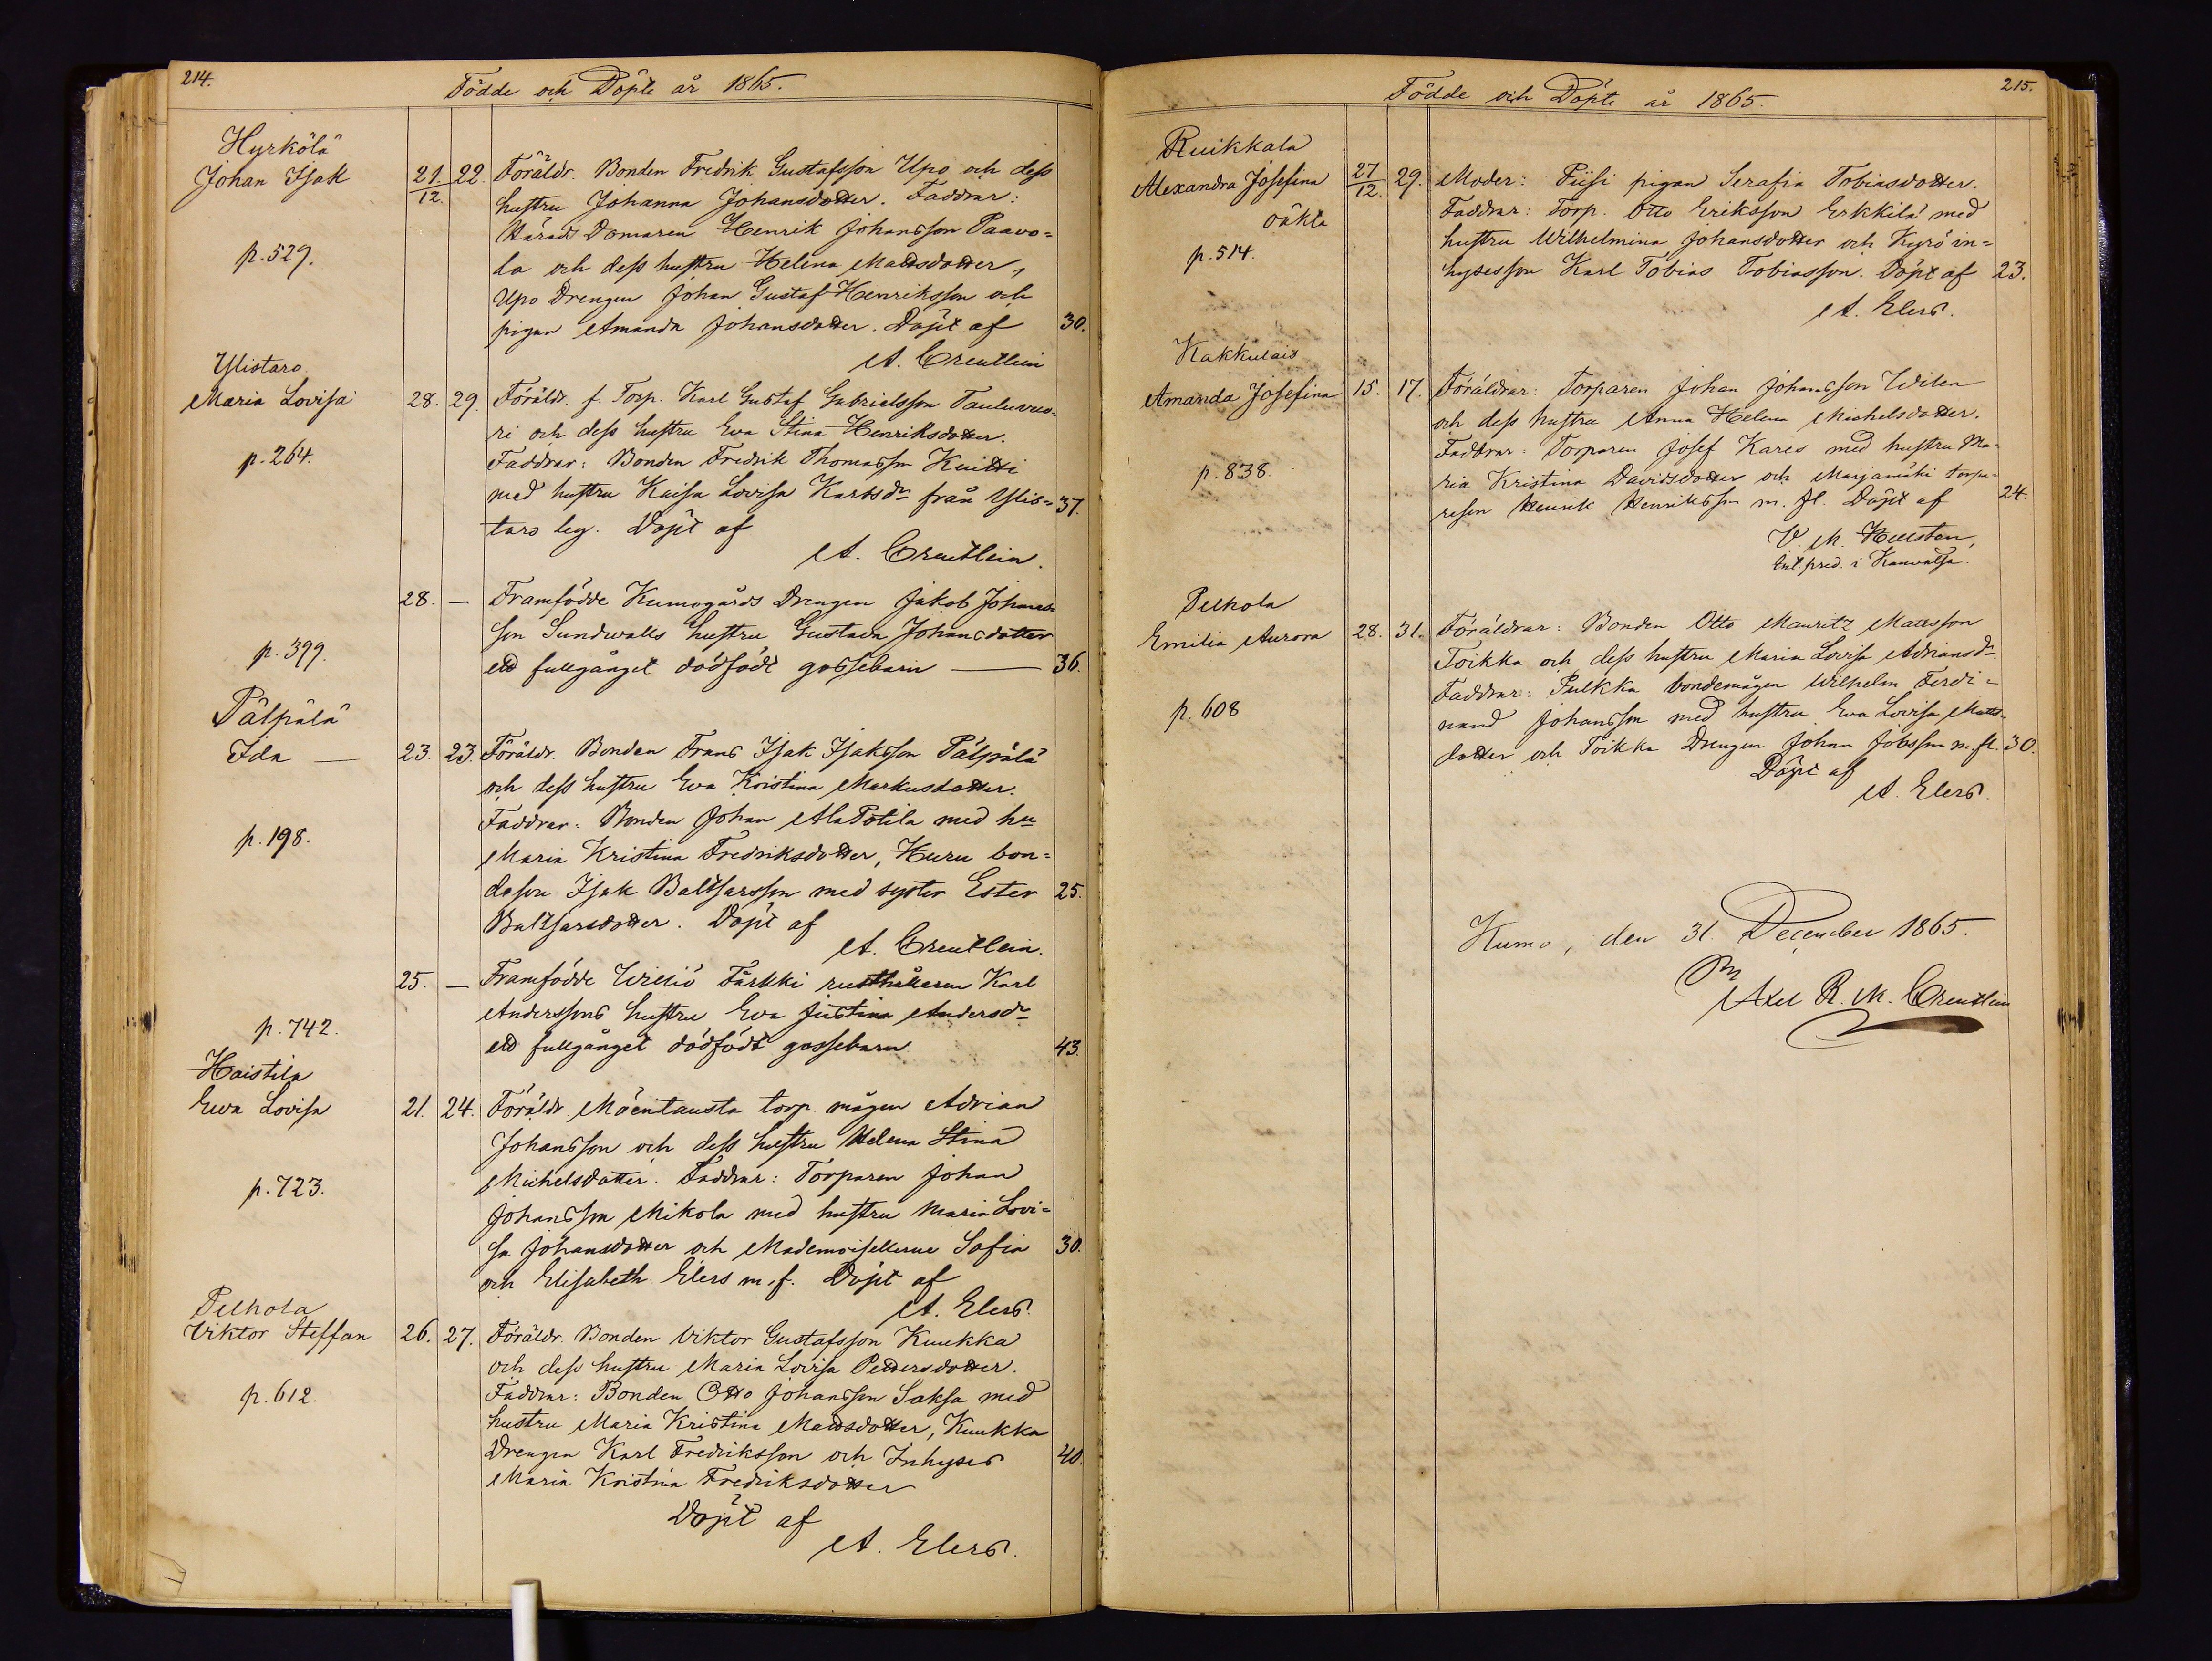 214.
Födde och Döpte år 1865.
Hyrkölä
Johan Isak 21./12. 22. Föräldr. Bonden Fredrik Gustafsson Upo och dess
hustru Johanna Johansdotter. Faddrar:
Härads Domaren Henrik Johansson Paavo-
p. 529.
la och dess hustru Helena Mattsdotter,
Upo Drengen Johan Gustaf Henriksson och
pigan Amanda Johansdotter. Döpt af 30.
A. Creutlein
Ylistaro
Maria Lovisa 28. 29. Föräldr. f. Torp. Karl Gustaf Gabrielsson Tauluvuo-
ri och dess hustru Eva Stina Henriksdotter.
p. 264.
Faddrar: Bonden Fredrik Thomasson Knitti
med hustru Kaisa Lovisa Karlsdr från Ylis- 37.
taro by. Döpt af
A. Creutlein.
28. — Framfödde Kumogårds Drengen Jakob Johans-
son Sundwalls hustru Gustava Johansdotter
p. 399.
ett fullgånget dödfödt gossebarn — 36.
Pälpälä
Ida — 23. 23. Föräldr. Bonden Frans Isak Isaksson Pälpälä
och dess hustru Eva Kristina Markusdotter.
Faddrar: Bonden Johan AlaPotila med hu
p. 198.
Maria Kristina Fredriksdotter, Kuru bon-
deson Isak Baltsarsson med syster Ester 25.
Baltsarsdotter. Döpt af
A. Creutlein.
25. — Framfödde Williö Färkki rusthållaren Karl
Anderssons hustru Eva Justina Andersdr
p. 742.
ett fullgånget dödfödt gossebarn 43.
Haistila
Ewa Lovisa 21. 24. Föräldr. Mäentausta torp. mågen Adrian
Johansson och dess hustru Helena Stina
Michelsdotter. Faddrar: Torparen Johan
p. 723.
Johansson Mikola med hustru Maria Lovi-
sa Johansdotter och Mademoisellerne Sofia 30.
och Elisabeth Elers m. f. Döpt af
A. Elers.
Pelhola
Viktor Steffan 26. 27. Föräldr. Bonden Viktor Gustafsson Kuukka
och dess hustru Maria Lovisa Pettersdotter.
p. 612.
Faddrar: Bonden Otto Johansson Saksa med
hustru Maria Kristina Mattsdotter, Kuukka
Drengen Karl Fredriksson och Inhyses 40.
Maria Kristina Fredriksdotter
Döpt af
A. Elers.
215.
Födde och Döpte år 1865.
Ruikkala
Alexandra Josefina 27/12. 29. Moder: Piisi pigan Serafia Tobiasdotter.
oäkta
Faddrar: Torp. Otto Eriksson Erkkilä med
hustru Wilhelmina Johansdotter och Kyrö in-
p. 514.
hysesson Karl Tobias Tobiasson. Döpt af 23.
A. Elers.
Kakkulais
Amanda Josefina 15. 17. Föräldrar: Torparen Johan Johansson Wilen
och dess hustru Anna Helena Michelsdotter.
Faddrar: Torparen Josef Kares med hustru Ma-
p. 838.
ria Kristina Davidsdotter och Marjamäki torpa-
reson Henrik Henriksson m. fl. Döpt af 24.
V. M. Hellsten,
Ext. pred. i Kauvatsa.
Pelhola
Emilia Aurora 28. 31. Föräldrar: Bonden Otto Mauritz Mattsson
Toikka och dess hustru Maria Lovisa Adriansdr.
Faddrar: Pulkka bondemågen Wilhelm Ferdi-
p. 608
nand Johansson med hustru Eva Lovisa Matts-
dotter och Toikka Drengen Johan Jobsson m. fl. 30.
Döpt af
A. Elers.
Kumo, den 31. December 1865.
Axel R. M. Creutlein